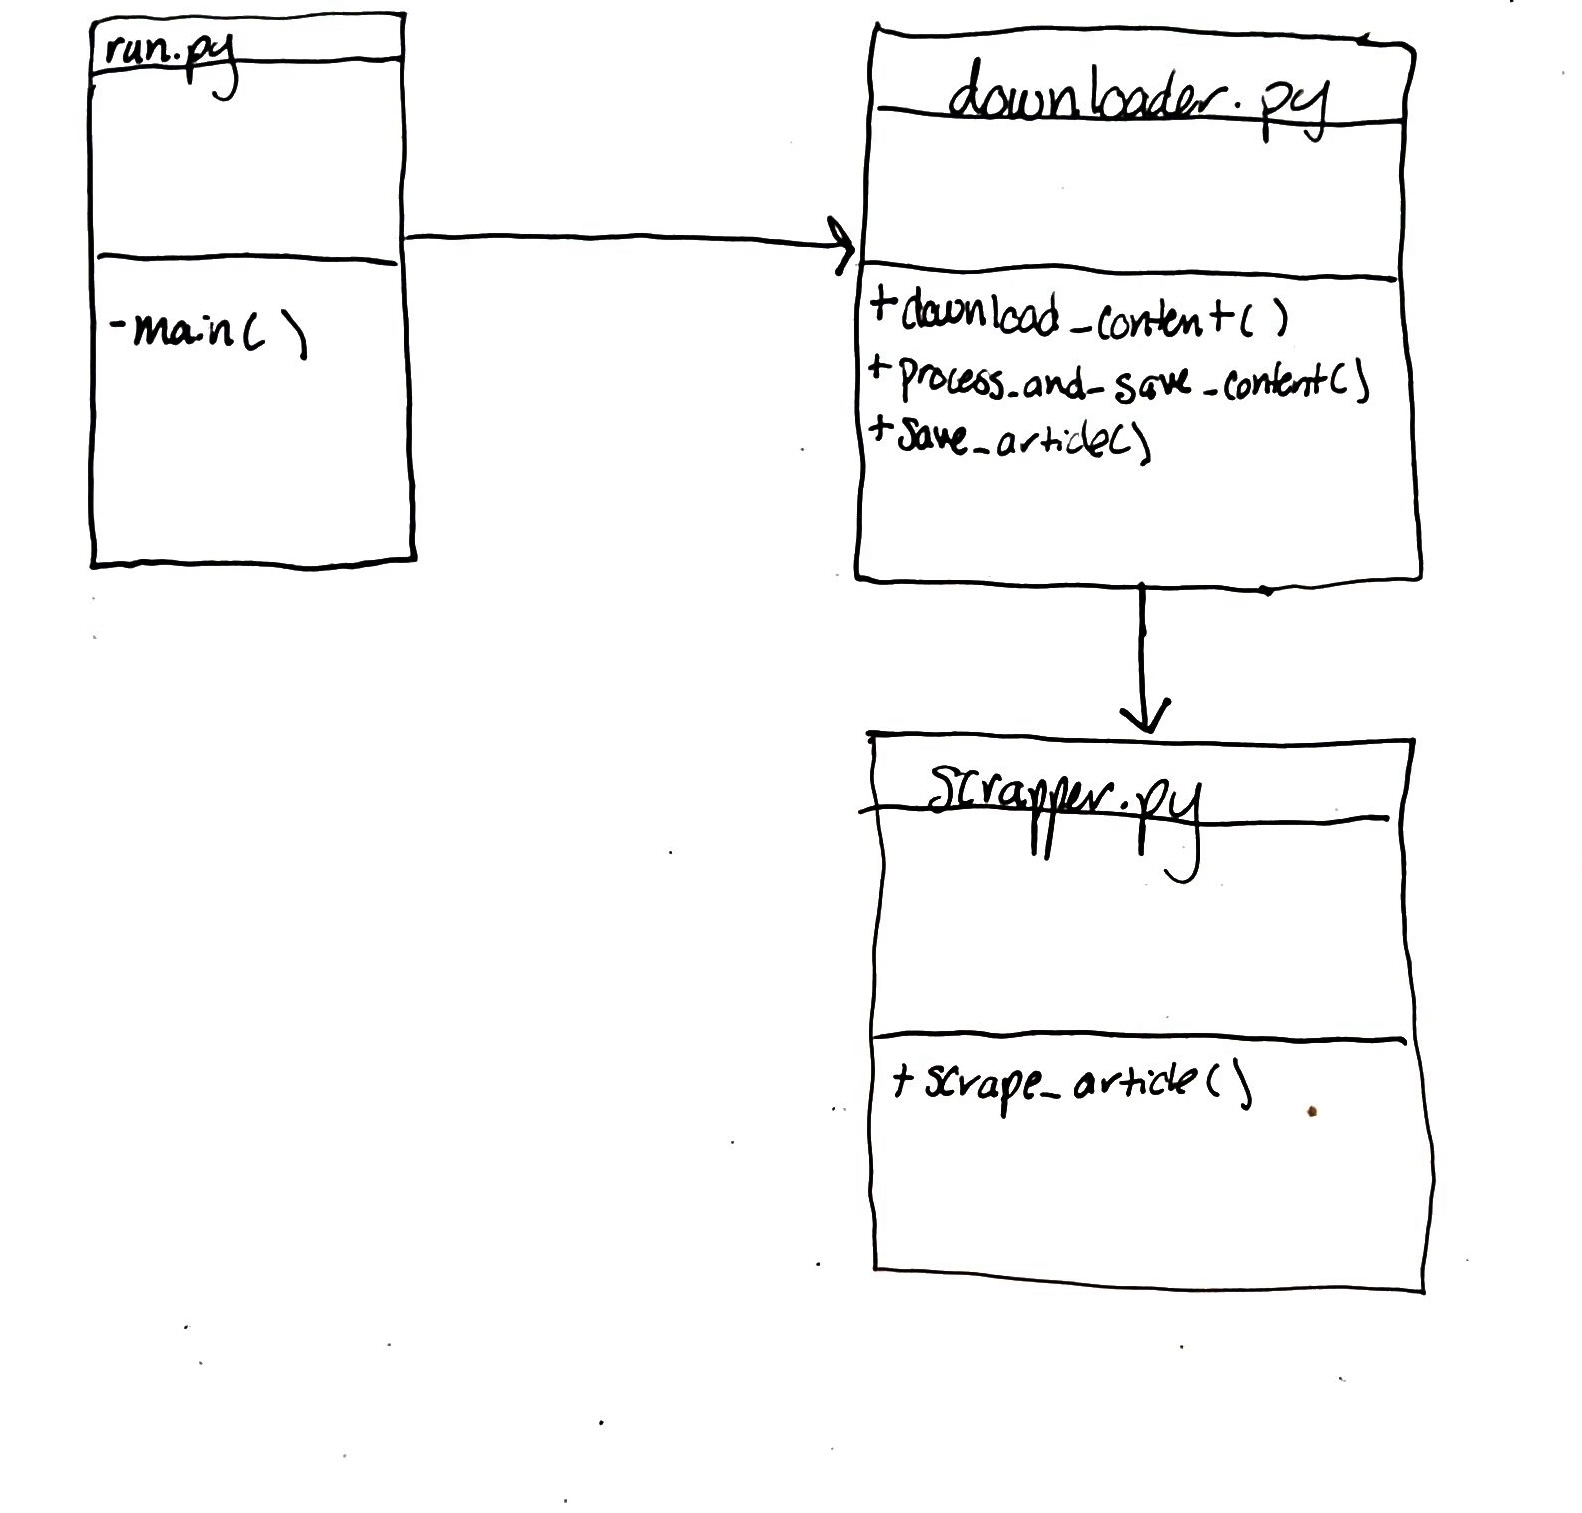 run.py
- main()
downloader.py
+ download_content()
+ process_and_save_content()
+ save_article()
scrapper.py
+ scrape_article()